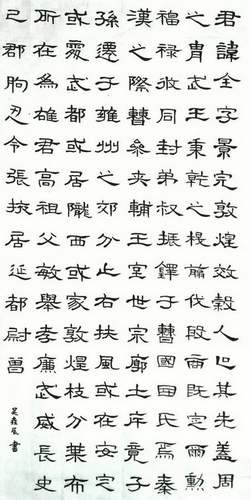 君諱全字景完敦煌效穀人也其先蓋周
之胄武王秉乾之機翦伐殷商既定爾勳
福祿攸同封弟叔振鐸于曹國因氏焉秦
漢之際曹參夾輔王室世宗廓土斥竟子
孫遷于雍州之郊分止右扶風或在安定
或處武都或居隴西或家敦煌枝分葉布
所在為雄君高祖父敏舉孝廉武威長史
巴郡朐忍令張掖居延都尉曾
書